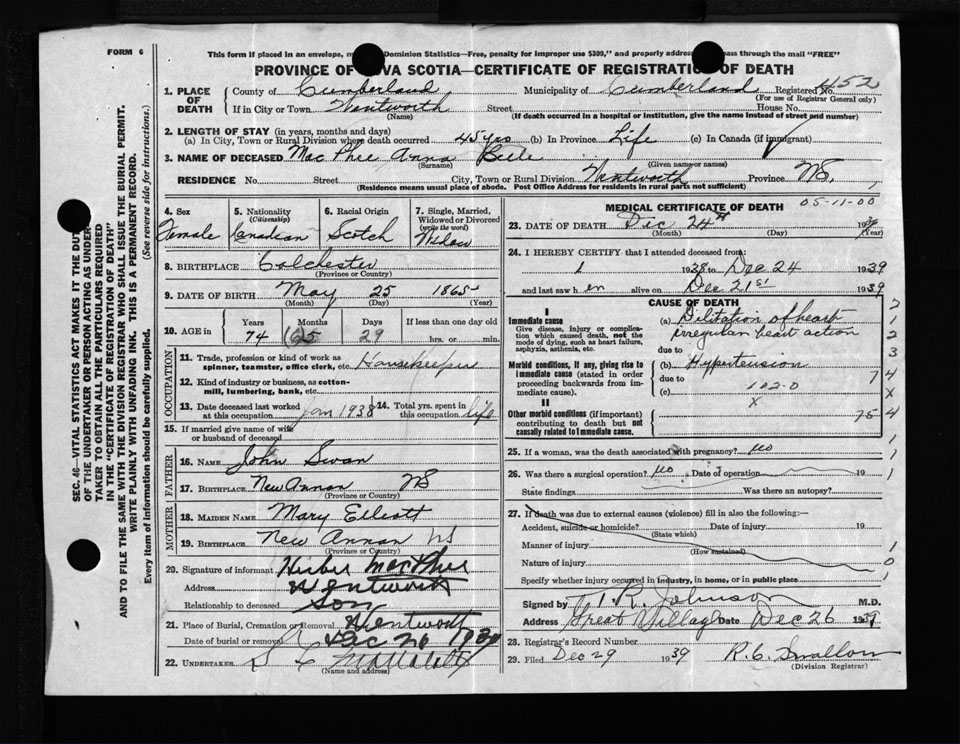 FORM 6
This form if placed in an envelope, Dominion Statistics—Free, penalty for improper use $300," and properly address pass through the mail "FREE"
PROVINCE OF NOVA SCOTIA—CERTIFICATE OF REGISTRATION OF DEATH
1. PLACE OF DEATH
County of Cumberland Municipality of Cumberland Registered No. 4152
(For use of Registrar General only)
If in City or Town Wentworth Street House No.
(Name) (If death occurred in a hospital or institution, give the name instead of street and number)
2. LENGTH OF STAY (in years, months and days)
(a) In City, Town or Rural Division where death occurred 45 yrs (b) In Province Life (c) In Canada (if immigrant)
3. NAME OF DECEASED MacPhee Anna Belle
(Surname) (Given name or names)
RESIDENCE No. Street City, Town or Rural Division Wentworth Province NS.
(Residence means usual place of abode. Post Office Address for residents in rural parts not sufficient)
4. Sex
Female
5. Nationality
(Citizenship)
Canadian
6. Racial Origin
Scotch
7. Single, Married, Widowed or Divorced
(write the word)
Widow
8. BIRTHPLACE Colchester
(Province or Country)
9. DATE OF BIRTH May 25 1865
(Month) (Day) (Year)
10. AGE in Years Months Days If less than one day old
74 29 hrs. or min.
OCCUPATION
11. Trade, profession or kind of work as
spinner, teamster, office clerk, etc. Housekeeper
12. Kind of industry or business, as cotton-
mill, lumbering, bank, etc.
13. Date deceased last worked at this occupation Jan 1938 14. Total yrs. spent in this occupation life
15. If married give name of wife
or husband of deceased
FATHER
16. NAME John Swan
17. BIRTHPLACE New Annan NS
(Province or Country)
MOTHER
18. MAIDEN NAME Mary Elliott
19. BIRTHPLACE New Annan NS
(Province or Country)
20. Signature of informant MacPhee
Address Wentworth
Relationship to deceased Son
21. Place of Burial, Cremation or Removal Wentworth
Date of burial or removal Dec 26 1939
22. UNDERTAKER
(Name and address)
MEDICAL CERTIFICATE OF DEATH
05-11-00
23. DATE OF DEATH Dec 24th 1939
(Month) (Day) (Year)
24. I HEREBY CERTIFY that I attended deceased from:
1 1938 to Dec 24 1939
and last saw h er alive on Dec 21st 1939
CAUSE OF DEATH
I
Immediate cause
Give disease, injury or complica-
tion which caused death, not the
mode of dying, such as heart failure,
asphyxia, asthenia, etc.
(a) Diltation of heart
irregular heart action
due to
Morbid conditions, if any, giving rise to
immediate cause (stated in order
proceeding backwards from im-
mediate cause)
(b) Hypertension
due to
(c) 102-0
x
II
Other morbid conditions (if important)
contributing to death but not
causally related to immediate cause.
2
1
2
3
7 4
X
X
75 4
25. If a woman, was the death associated with pregnancy? no 1
26. Was there a surgical operation? no Date of operation 19 1
State findings Was there an autopsy?
27. If death was due to external causes (violence) fill in also the following:—
Accident, suicide or homicide? Date of injury 19
(State which)
Manner of injury 1
(How sustained)
Nature of injury 0
Specify whether injury occurred in industry, in home, or in public place 1
Signed by T. R. Johnson M.D.
Address Great Village Date Dec 26 1939
28. Registrar's Record Number
29. Filed Dec 29 1939 R. C. Swallow
(Division Registrar)
SEC. 46—VITAL STATISTICS ACT MAKES IT THE DUTY
OF THE UNDERTAKER OR PERSON ACTING AS UNDER-
TAKER TO OBTAIN ALL THE PARTICULARS REQUIRED
IN THE "CERTIFICATE OF REGISTRATION OF DEATH"
AND TO FILE THE SAME WITH THE DIVISION REGISTRAR WHO SHALL ISSUE THE BURIAL PERMIT.
WRITE PLAINLY WITH UNFADING INK. THIS IS A PERMANENT RECORD.
Every item of information should be carefully supplied. (See reverse side for instructions.)